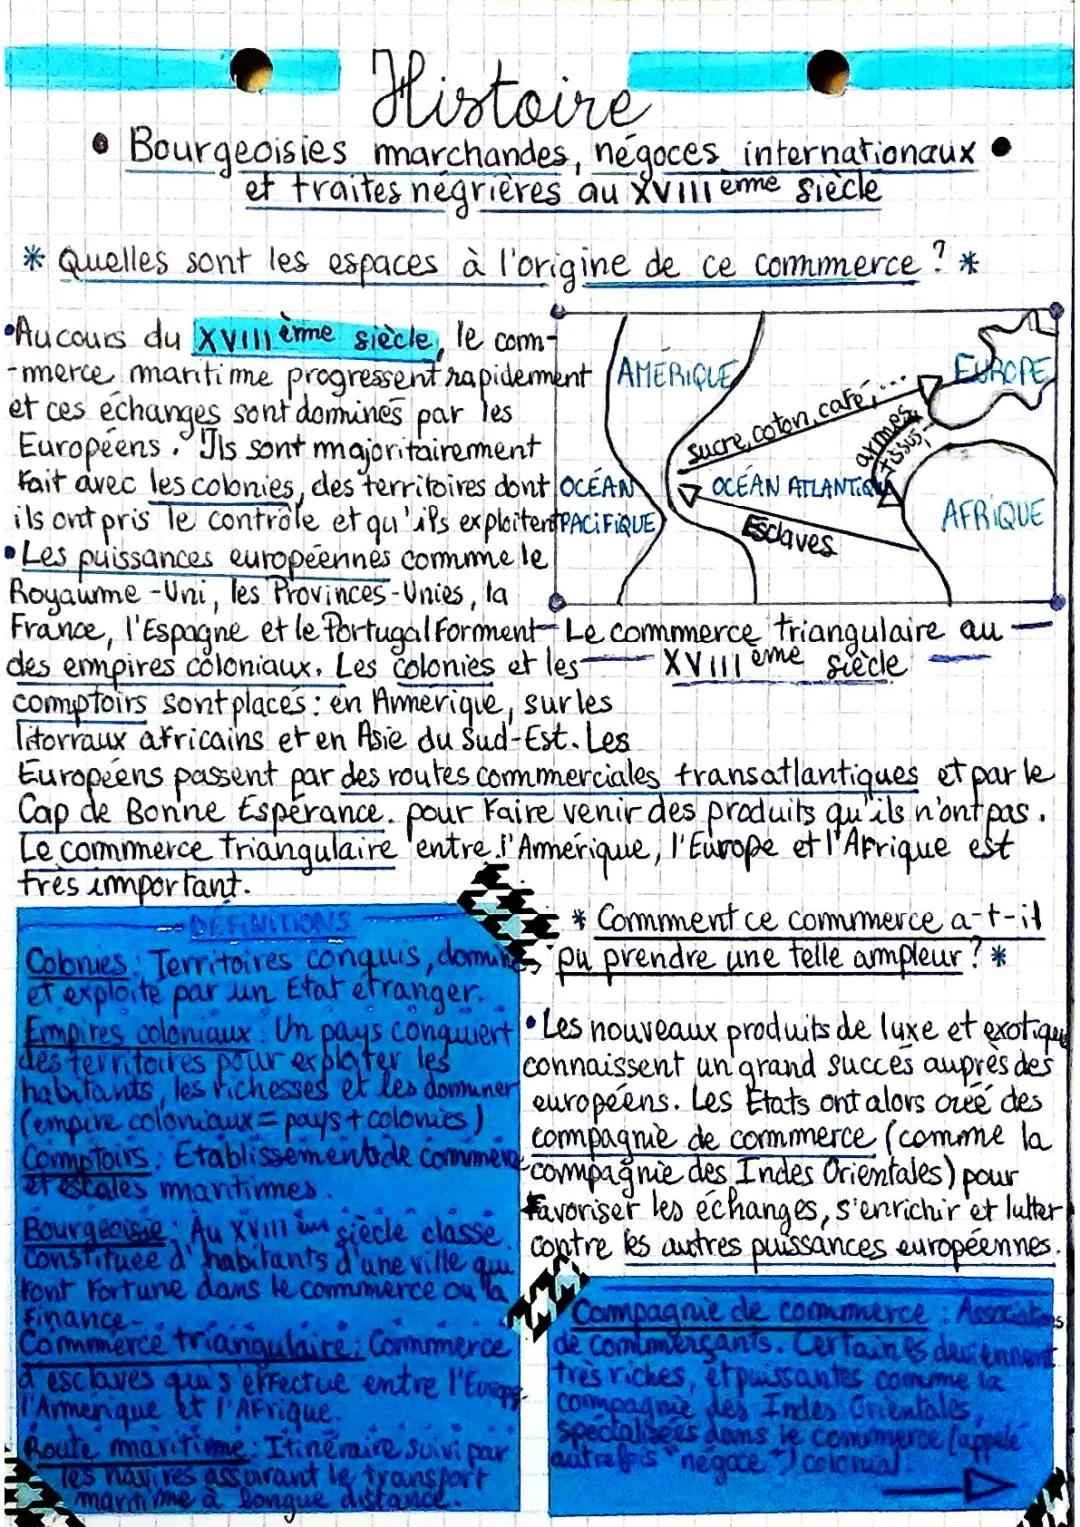 Histoire
• Bourgeoisies marchandes, négoces internationaux •
et traites négrières au XVIIIème siècle
* Quelles sont les espaces à l'origine de ce commerce ? *
• Au cours du XVIIIème siècle, le com-
-merce maritime progressent rapidement
et ces échanges sont dominés par les
Européens. Ils sont majoritairement
fait avec les colonies, des territoires dont
ils ont pris le contrôle et qu'ils exploitent
• Les puissances européennes comme le
Royaume-Uni, les Provinces-Unies, la
France, l'Espagne et le Portugal forment
des empires coloniaux. Les colonies et les
comptoirs sont placés : en Amérique, sur les
litorraux africains et en Asie du Sud-Est. Les
Européens passent par des routes commerciales transatlantiques et par le
Cap de Bonne Espérance. pour faire venir des produits qu'ils n'ont pas.
Le commerce triangulaire entre l'Amérique, l'Europe et l'Afrique est
très important.
AMÉRIQUE
EUROPE
sucre, coton, café, ...
armes
tissus
OCÉAN
PACIFIQUE
OCÉAN ATLANTIQUE
Esclaves
AFRIQUE
Le commerce triangulaire au
XVIIIème siècle
DÉFINITIONS
Colonies : Territoires conquis, dominés
et exploité par un Etat étranger.
Empires coloniaux : Un pays conquiert
des territoires pour exploiter les
habitants, les richesses et les dominer
(empire coloniaux = pays + colonies)
Comptoirs : Etablissements de commerce
et escales maritimes.
Bourgeoisie : Au XVIIIème siècle classe
constituée d'habitants d'une ville qui
font fortune dans le commerce ou la
finance.
Commerce triangulaire : Commerce
d'esclaves qui s'effectue entre l'Europe,
l'Amérique et l'Afrique.
Route maritime : Itinéraire suivi par
les navires assurant le transport
maritime à longue distance.
* Comment ce commerce a-t-il
pu prendre une telle ampleur ? *
• Les nouveaux produits de luxe et exotique
connaissent un grand succès auprès des
européens. Les États ont alors créé des
compagnie de commerce (comme la
compagnie des Indes Orientales) pour
favoriser les échanges, s'enrichir et lutter
contre les autres puissances européennes.
Compagnie de commerce : Associations
de commerçants. Certaines deviennent
très riches, et puissantes comme la
compagnie des Indes Orientales,
spécialisées dans le commerce (appelé
autrefois "négoce") colonial.